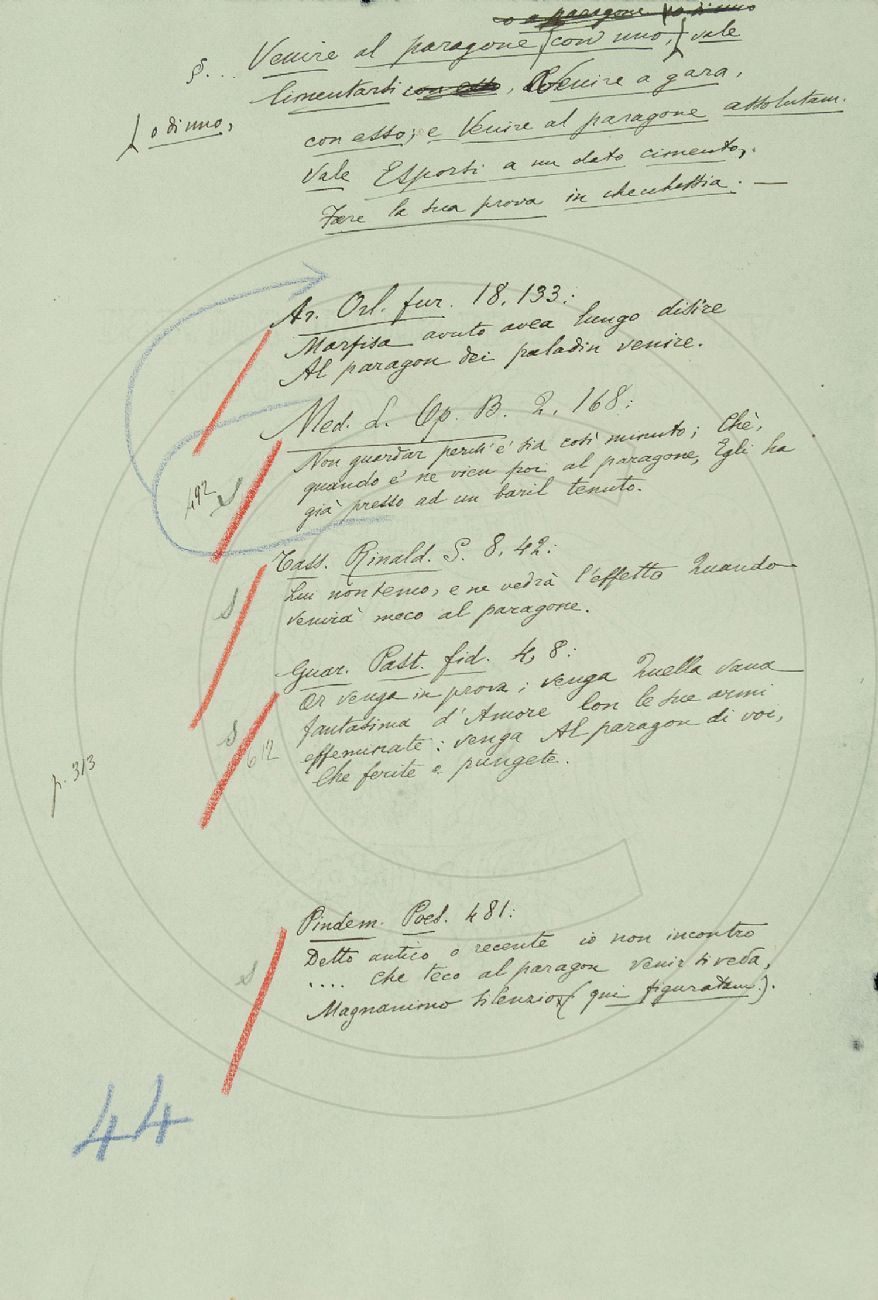 o a paragone, o di uno
§... Venire al paragone con uno, vale
Cimentarsi con esso, Venire a gara,
o di uno,
con esso; e Venire al paragone assolutam.
vale Esporsi a un dato cimento,
Fare la sua prova in checchessia. —
Ar. Orl. fur. 18. 133:
Marfisa avuto avea lungo disire
Al paragon dei paladin venire.
Med. L. Op. B. 2. 168:
Non guardar perch'e' sia così minuto; Chè,
quando e' ne vien poi al paragone, Egli ha
già presso ad un baril tenuto.
492
S
Tass. Rinald. S. 8. 42:
Lui non temo, e ne vedrà l'effetto Quando
verrà meco al paragone.
S
Guar. Past. fid. 4, 8:
Or venga in prova; venga Quella vana
fantasima d'Amore Con le sue armi
effeminate; venga Al paragon di voi,
Che ferite e pungete.
S
612
p. 313
Pindem. Poes. 481:
Detto antico o recente io non incontro
.... che teco al paragon venir si veda,
Magnanimo silenzio (qui figuratam.).
S
44